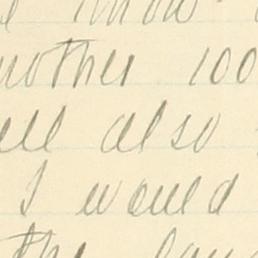 know
nother 100
ell also
I would
the